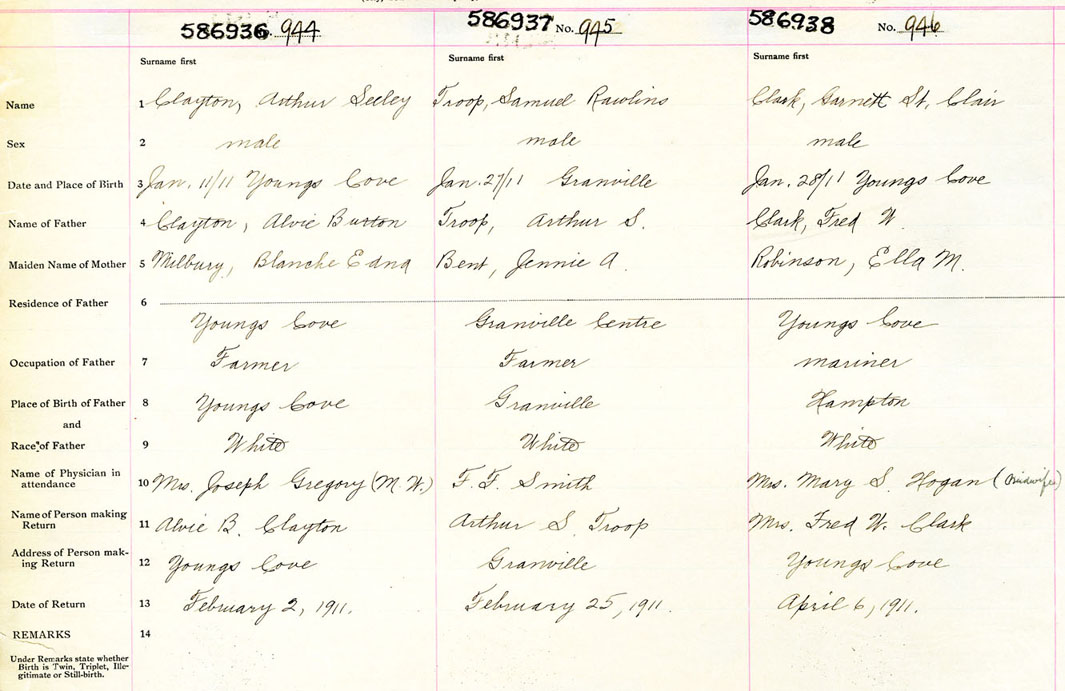 586936 944 586937 No. 945 586938 No. 946
Surname first Surname first Surname first
Name 1 Clayton, Arthur Seeley Troop, Samuel Rawlins Clark, Garnett St. Clair
Sex 2 male male male
Date and Place of Birth 3 Jan. 11/11 Youngs Cove Jan. 27/11 Granville Jan. 28/11 Youngs Cove
Name of Father 4 Clayton, Alvie Burton Troop, Arthur S. Clark, Fred W.
Maiden Name of Mother 5 Milbury, Blanche Edna Bent, Jennie A. Robinson, Ella M.
Residence of Father 6
Youngs Cove Granville Centre Youngs Cove
Occupation of Father 7 Farmer Farmer mariner
Place of Birth of Father 8 Youngs Cove Granville Hampton
and
Race of Father 9 White White White
Name of Physician in
attendance 10 Mrs. Joseph Gregory (M.W.) F. F. Smith Mrs. Mary S. Hogan (midwife)
Name of Person making
Return 11 Alvie B. Clayton Arthur S. Troop Mrs. Fred W. Clark
Address of Person mak-
ing Return 12 Youngs Cove Granville Youngs Cove
Date of Return 13 February 2, 1911. February 25, 1911. April 6, 1911.
REMARKS 14
Under Remarks state whether
Birth is Twin, Triplet, Ille-
gitimate or Still-birth.